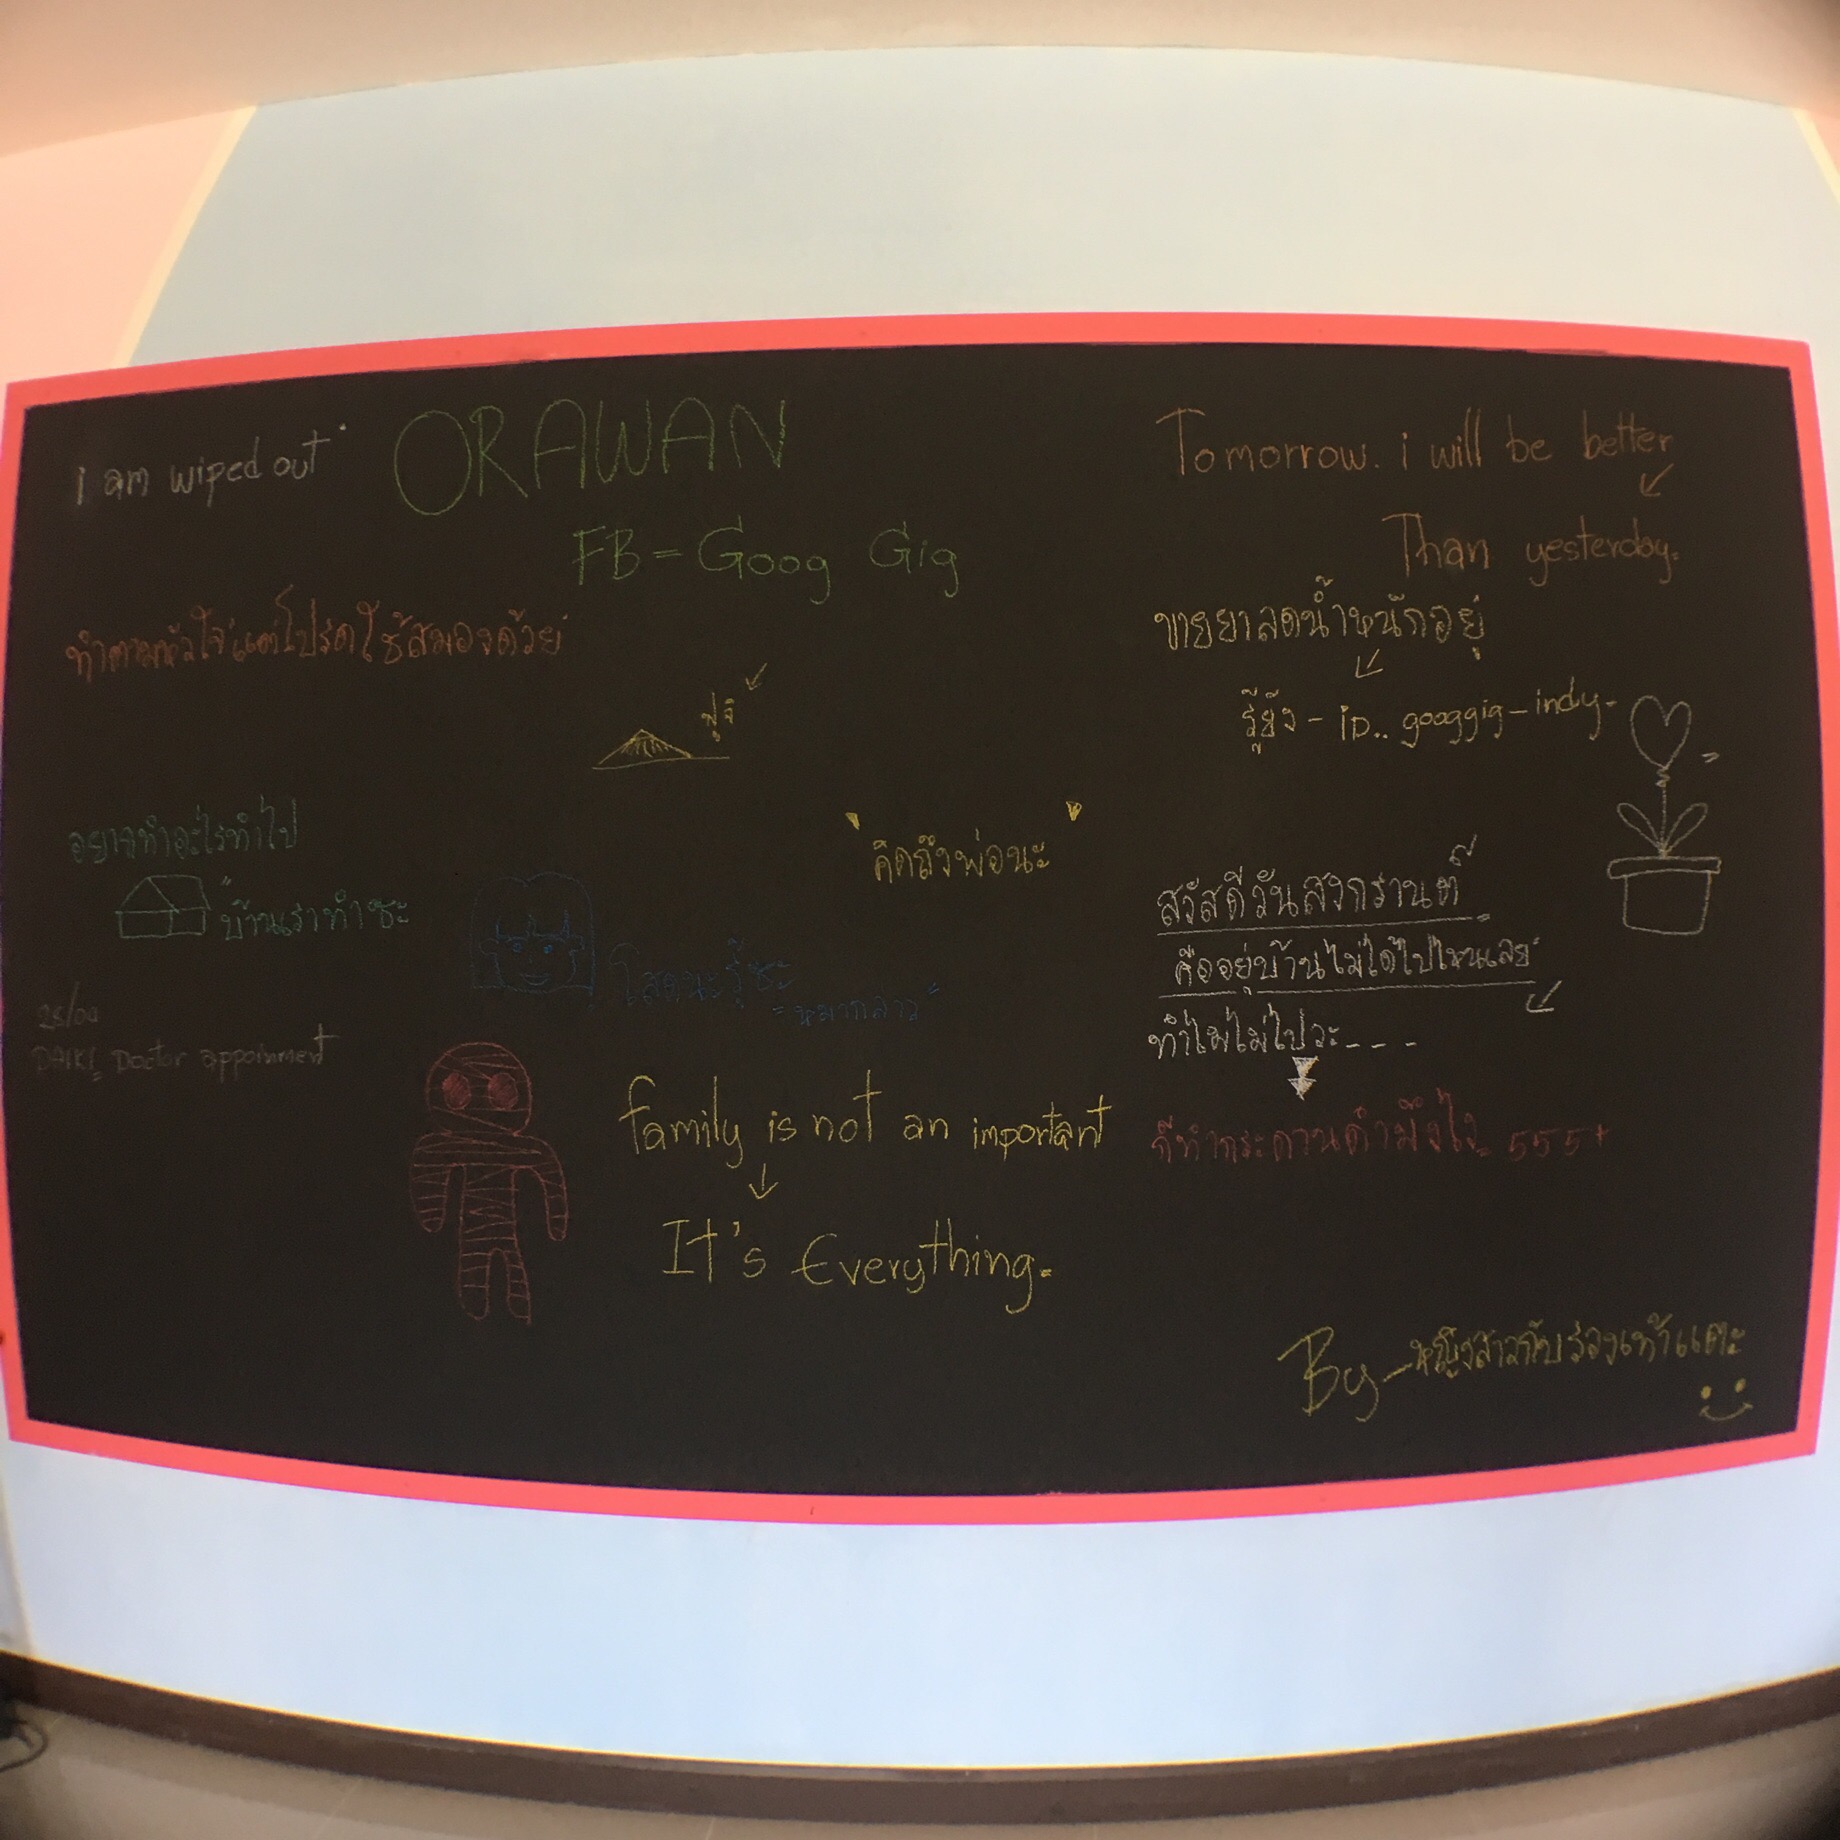 i am wiped out
ORAWAN
FB = Goog Gig
Tomorrow. i will be better
Than yesterday.
ทำตามหัวใจแต่โปรดใช้สมองด้วย
ขายยาลดน้ำหนักอยู่
รู้ยัง - ID.. googgig_indy.
ฟูจิ
อยากทำอะไรทำไป
"บ้านเราทำซะ
"คิดถึงพ่อนะ"
สวัสดีวันสงกรานต์
คืออยู่บ้านไม่ได้ไปไหนเลย
ทำไมไม่ไปวะ---
ก็ทำกระดานดำมั้งไง 555+
โสดนะรู้ซะ
Doctor appoinment
family is not an important
It's Everything.
By-หญิงสาวกับรองเท้าแตะ